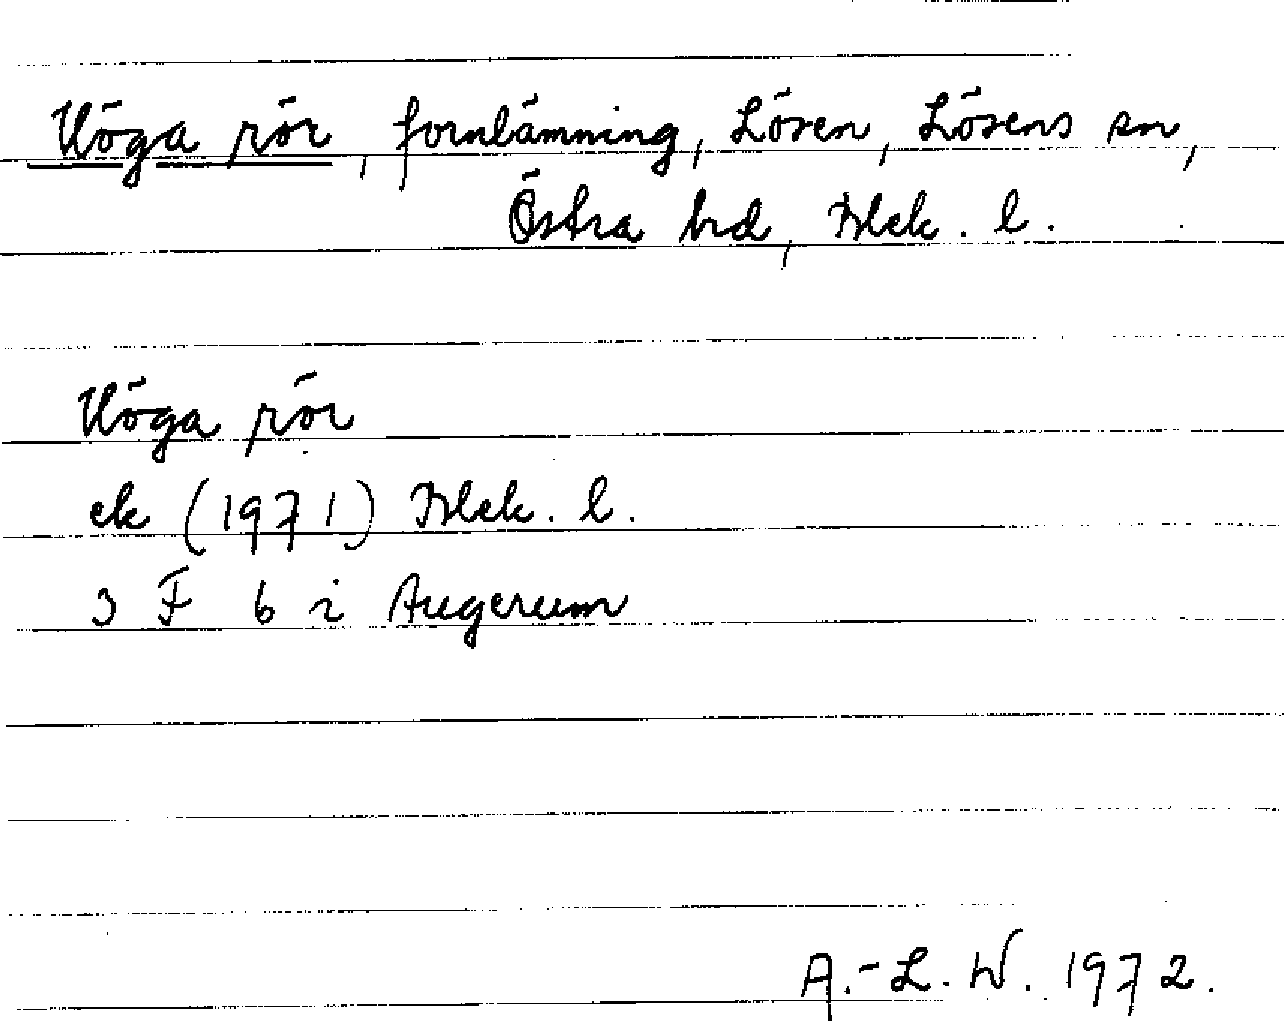 Höga rör, fornlämning, Lösen, Lösens sn,
Östra hd, Blek. l.
Höga rör
ek (1971) Blek. l.
3 F 6 i Augerum
A.-L. W. 1972.